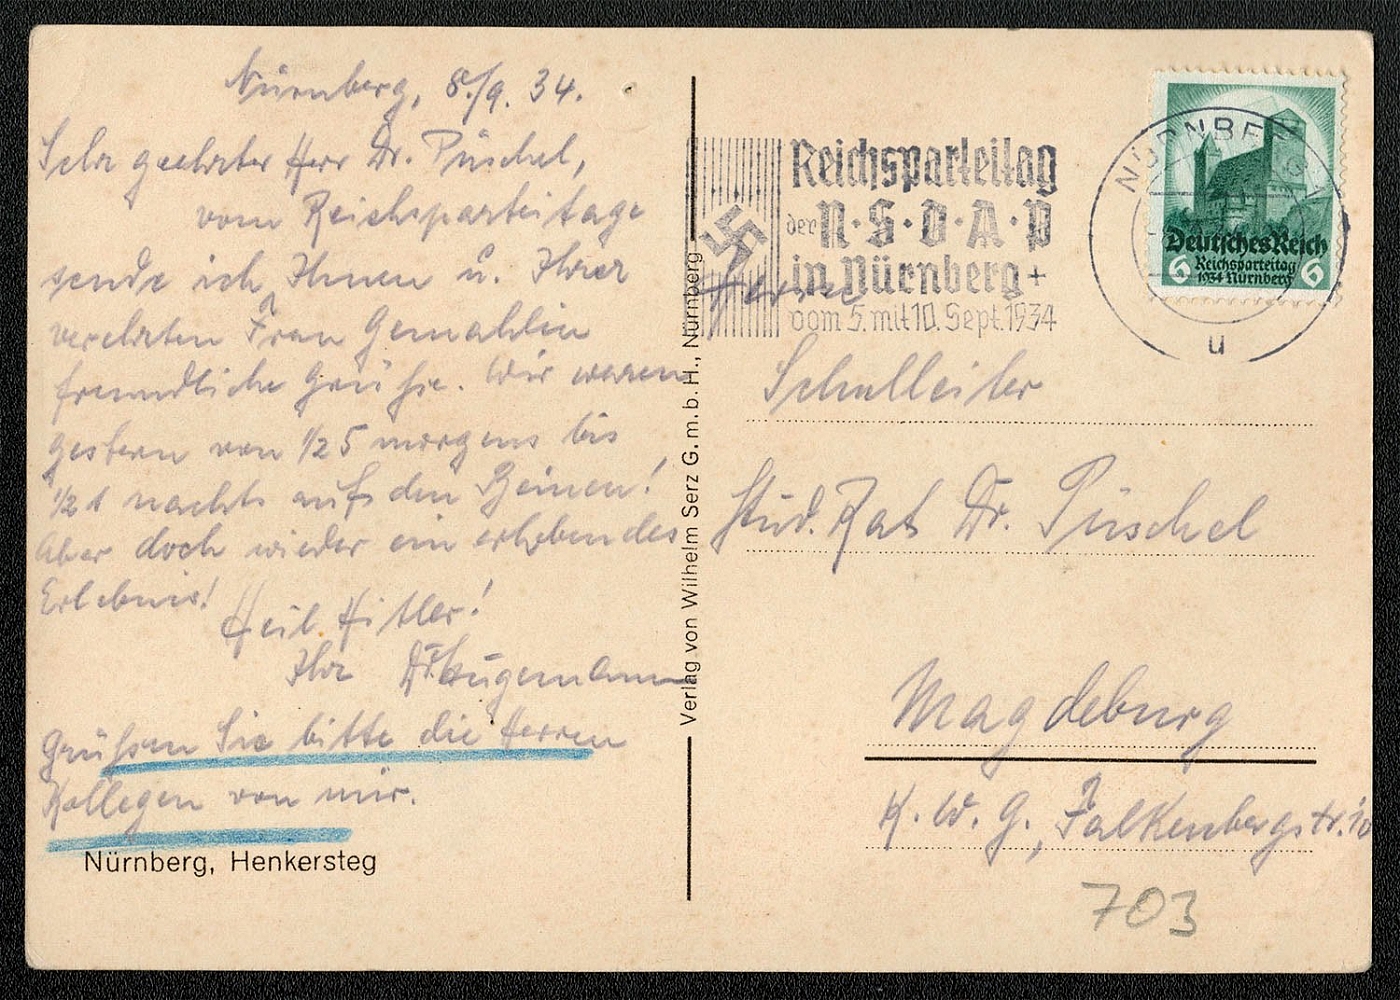 Nürnberg, 8./9. 34.
Sehr geehrter Herr Dr. Püschel,
vom Reichsparteitage
sende ich Ihnen u. Ihrer
verehrten Frau Gemahlin
freundliche Grüße. Wir waren
gestern von 1/2 5 morgens bis
1/2 1 nachts auf den Beinen!
Aber doch wieder ein erhebendes
Erlebnis!
Heil Hitler!
Ihr
Grüßen Sie bitte die Herren
Kollegen von mir.
Nürnberg, Henkersteg
Verlag von Wilhelm Serz G.m.b.H., Nürnberg
Reichsparteitag
der N·S·D·A·P
in Nürnberg +
vom 5. mit 10. Sept. 1934
NÜRNBERG
u
Deutsches Reich
6 Reichsparteitag 6
1934 Nürnberg
Herrn
Schulleiter
Stud. Rat Dr. Püschel
Magdeburg
K. W. G., Falkenbergstr. 10
703